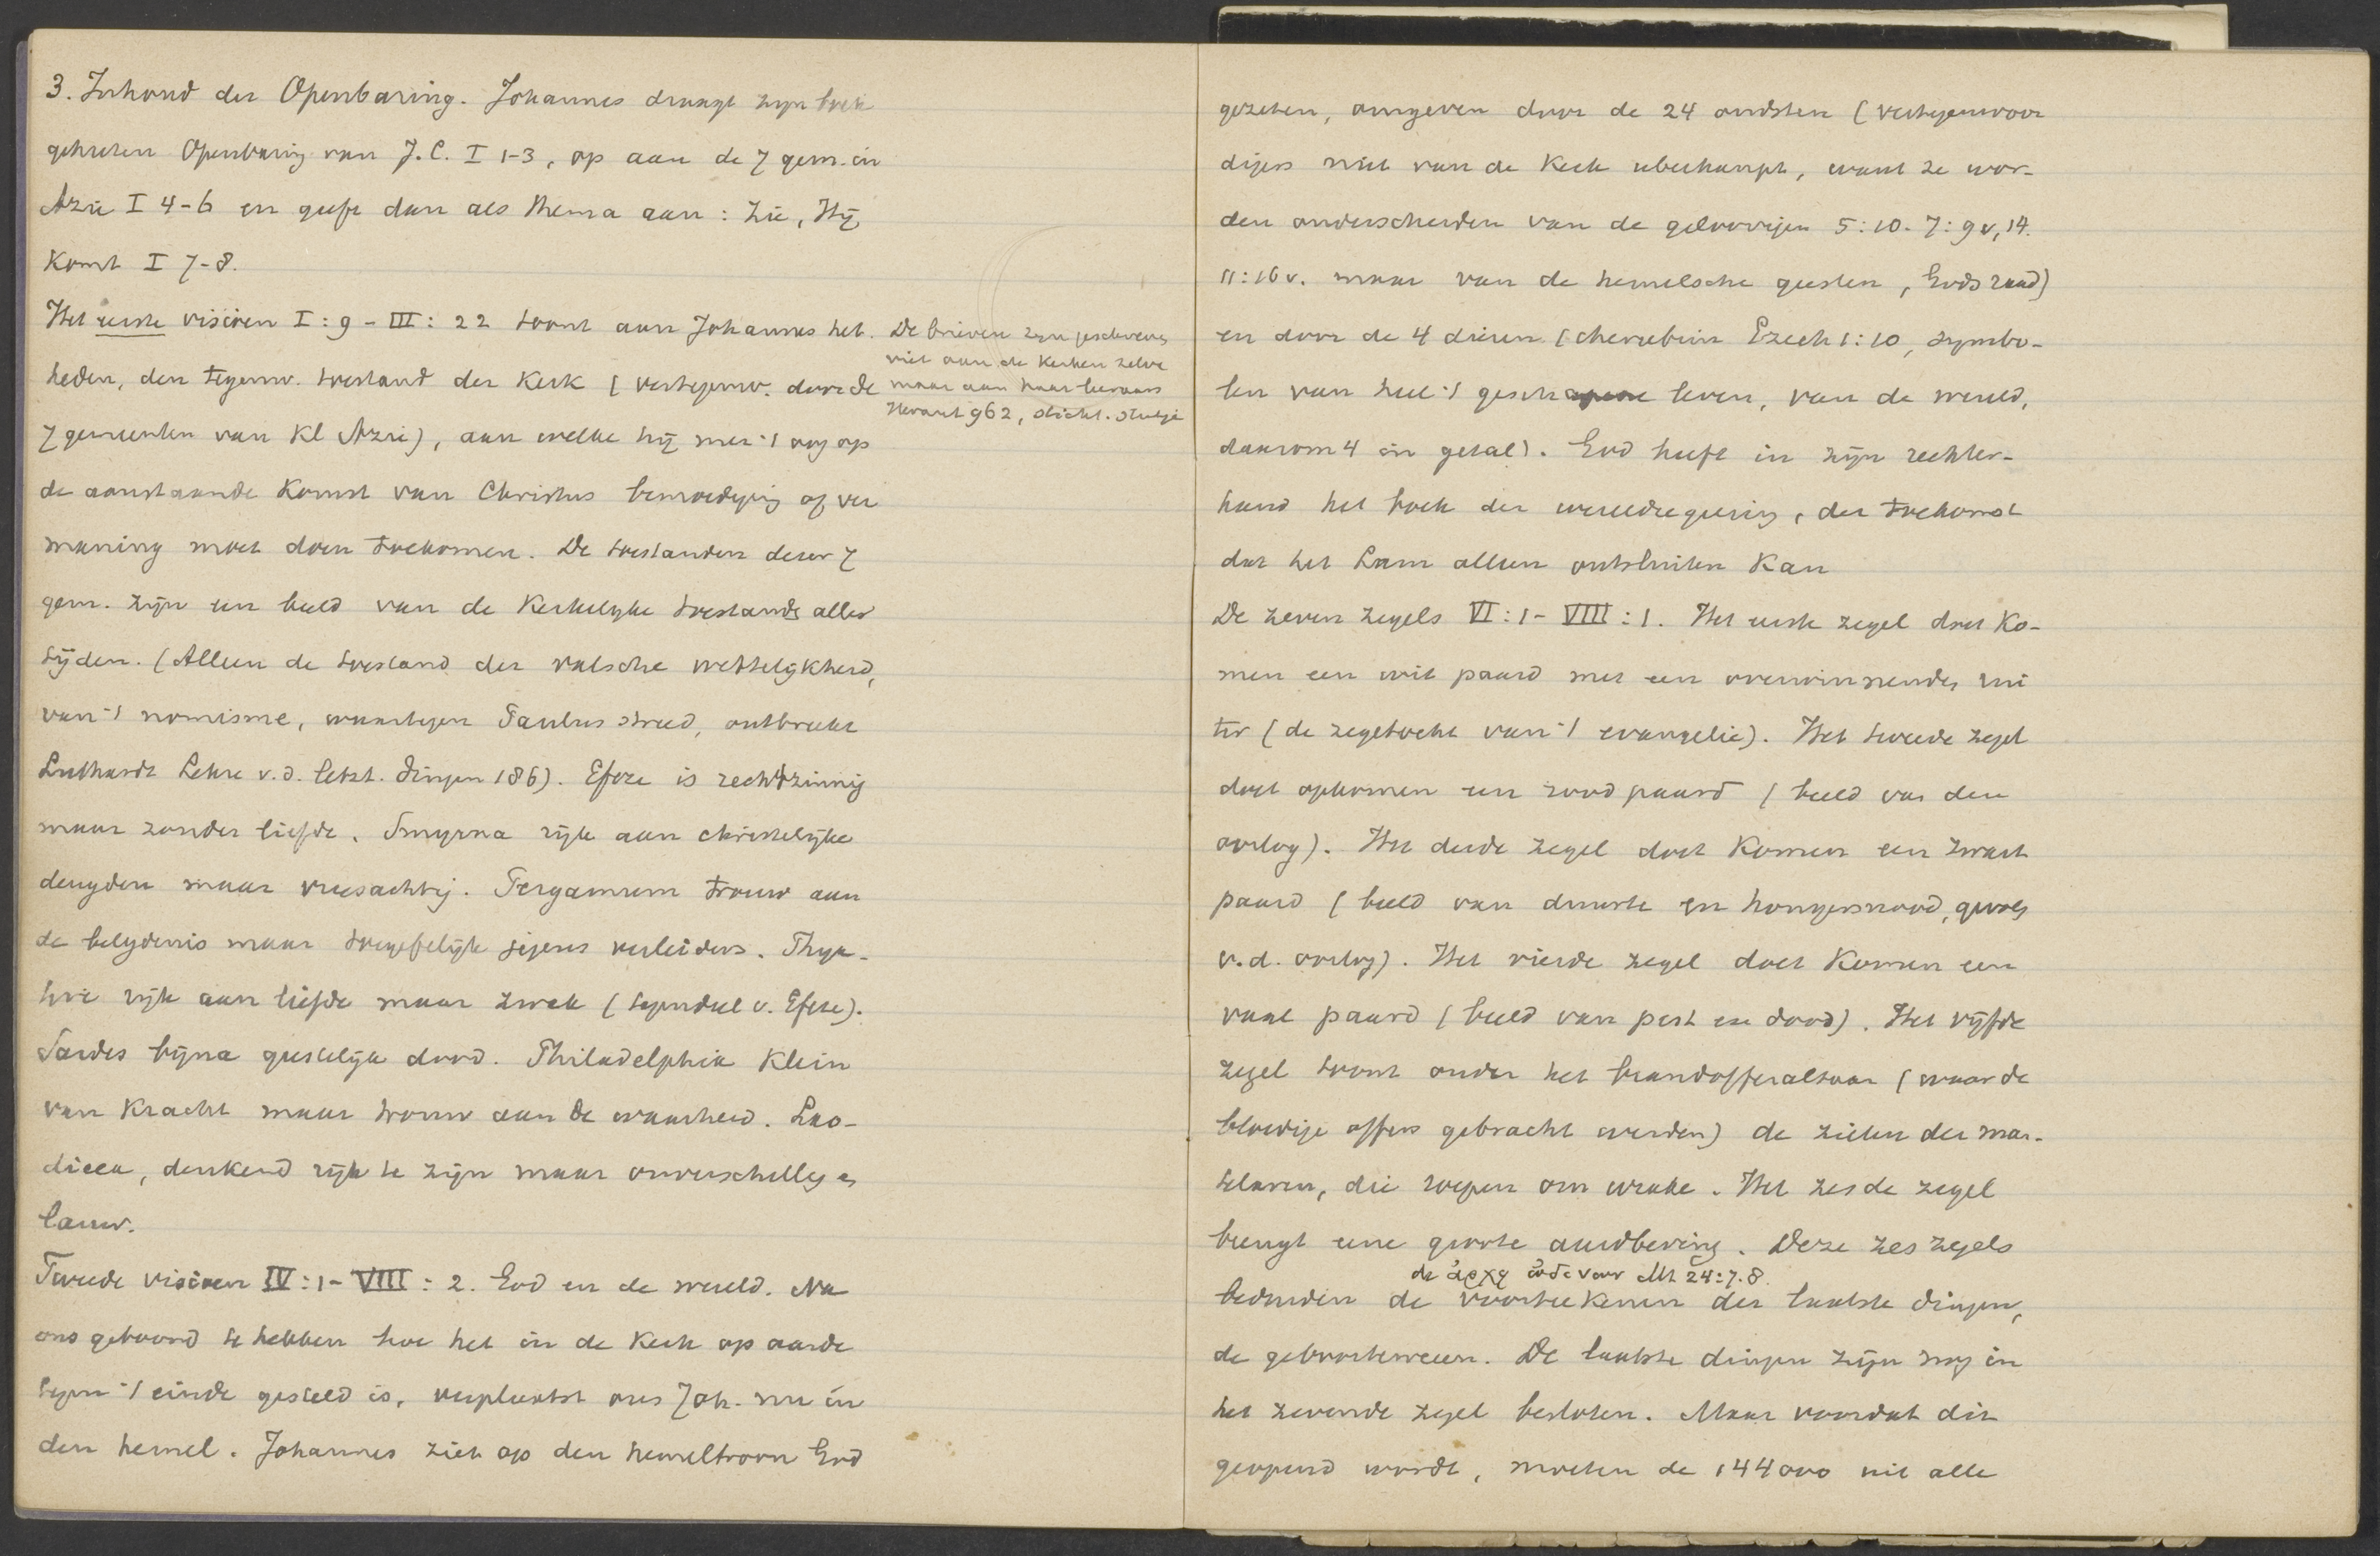 3. Inhoud der Openbaring. Johannes draagt zijn boek
geheeten Openbaring van J.C. I 1-3, op aan de 7 gem. in
Azië I 4-6 en geeft dan als thema aan: Zie, Hij
komt I 7-8.
Het eerste visioen I:9 - III:22 toont aan Johannes het
heden, den tegenw. toestand der kerk (vertegenw. door de
7 gemeenten van Kl Azië), aan welke hij met 't oog op
de aanstaande komst van Christus bemoediging of ver
maning moet doen toekomen. De toestanden dezer 7
gem. zijn een beeld van de kerkelijke toestands aller
tijden. (Alleen de toestand der valsche wettelijkheid,
van 't nomisme, waartegen Paulus streed, ontbreekt
Luthardt Lehre v.d. letzt. Dingen 186). Efeze is rechtzinnig
maar zonder liefde. Smyrna rijk aan christelijke
deugden maar vreesachtig. Pergamum trouw aan
de belydenis maar toegefelijk jegens verleiders. Thya-
tire rijk aan liefde maar zwak (tegendeel v. Efeze).
Sardes bijna geestelijk dood. Philadelphia klein
van kracht maar trouw aan de waarheid. Lao-
dicea, denkend rijk te zijn maar onverschillig en
lauw.
De brieven zijn geschreven
niet aan de kerken zelve
maar aan haar leeraars
962, sticht.
Tweede visioen IV:1 - VIII:2. God en de wereld. Na
ons getoond te hebben hoe het in de kerk op aarde
tegen 't einde gesteld is, verplaatst ons Joh. nu in
den hemel. Johannes ziet op den hemeltroon God
gezeten, omgeven door de 24 oudsten (vertegenwoor
digers niet van de kerk uberhaupt, want ze wor-
den onderscheiden van de geloovigen 5:10. 7:9v, 14.
11:16v. maar van de hemelsche geesten, Gods raad)
en door de 4 dieren (cherubim Ezech 1:10, symbo-
len van heel 't geschapene leven, van de wereld,
daarom 4 in getal). God heeft in zijn rechter-
hand het boek der wereldregeering, der toekomst
dat het Lam alleen ontsluiten kan
De zeven zegels VI:1 - VIII:1. Het eerste zegel doet ko-
men een wit paard met een overwinnenden rui
ter (de zegetocht van 't evangelie). Het tweede zegel
doet opkomen een rood paard (beeld van den
oorlog). Het derde zegel doet komen een zwart
paard (beeld van duurte en hongersnood, gevolg
v.d. oorlog). Het vierde zegel doet komen een
vaal paard (beeld van pest en dood). Het vijfde
zegel toont onder het brandofferaltaar (waar de
bloedige offers gebracht werden) de zielen der mar-
telaren, die roepen om wrake. Het zesde zegel
brengt eene groote aardbeving. Deze zes zegels
de ἀρχη ὠδινων Mt 24:7.8.
beduiden de voorteekenen der laatste dingen,
de geboorteweeen. De laatste dingen zijn nog in
het zevende zegel besloten. Maar voordat dit
geopend wordt, moeten de 144000 uit alle